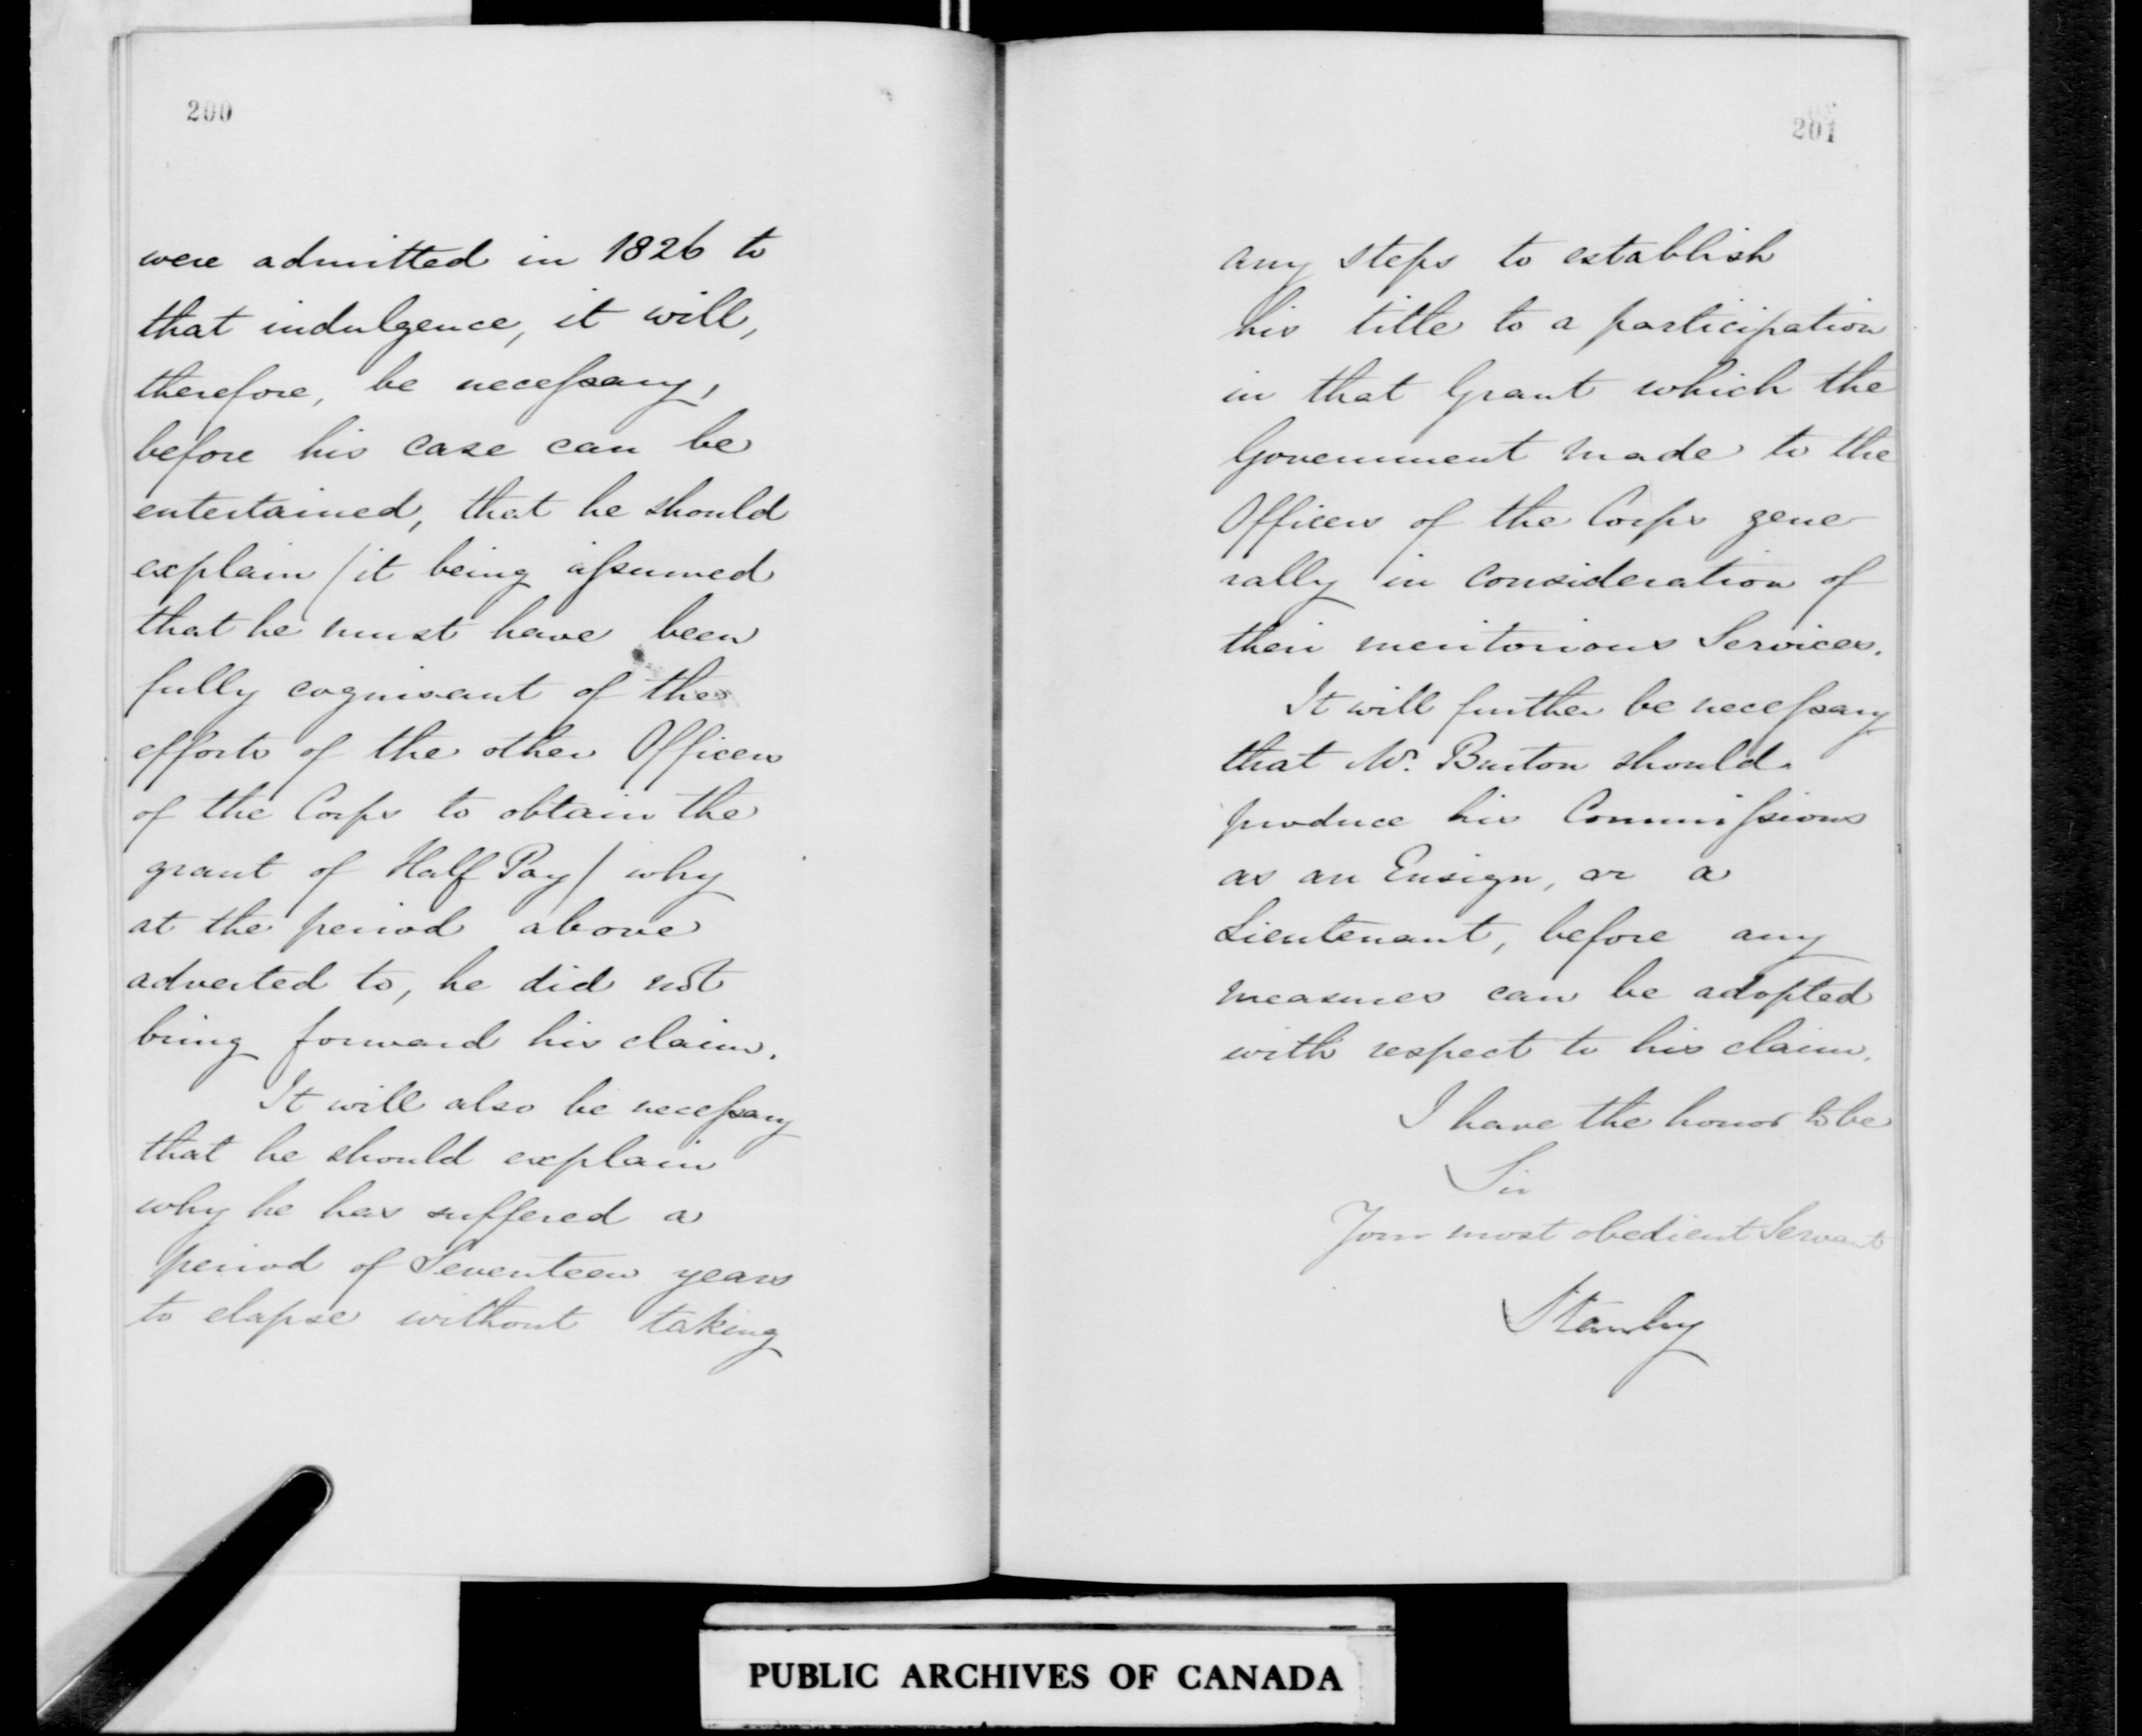 200
were admitted in 1826 to
that indulgence, it will,
therefore, be necessary,
before his case can be
entertained, that he should
explain /it being assumed
that he must have been
fully cognisant of the
efforts of the other Officers
of the Corps to obtain the
grant of Half Pay/ why
at the period above
adverted to, he did not
bring forward his claim.
It will also be necessary
that he should explain
why he has suffered a
period of Seventeen years
to elapse without taking
201
any steps to establish
his title to a participation
in that Grant which the
Government made to the
Officers of the Corps gene
rally in consideration of
their meritorious Services.
It will further be necessary
that Mr. Burton should
produce his Commissions
as an Ensign, or a
Lieutenant, before any
measures can be adopted
with respect to his claim.
I have the honor to be
Sir
Your most obedient Servant
Stanley
PUBLIC ARCHIVES OF CANADA